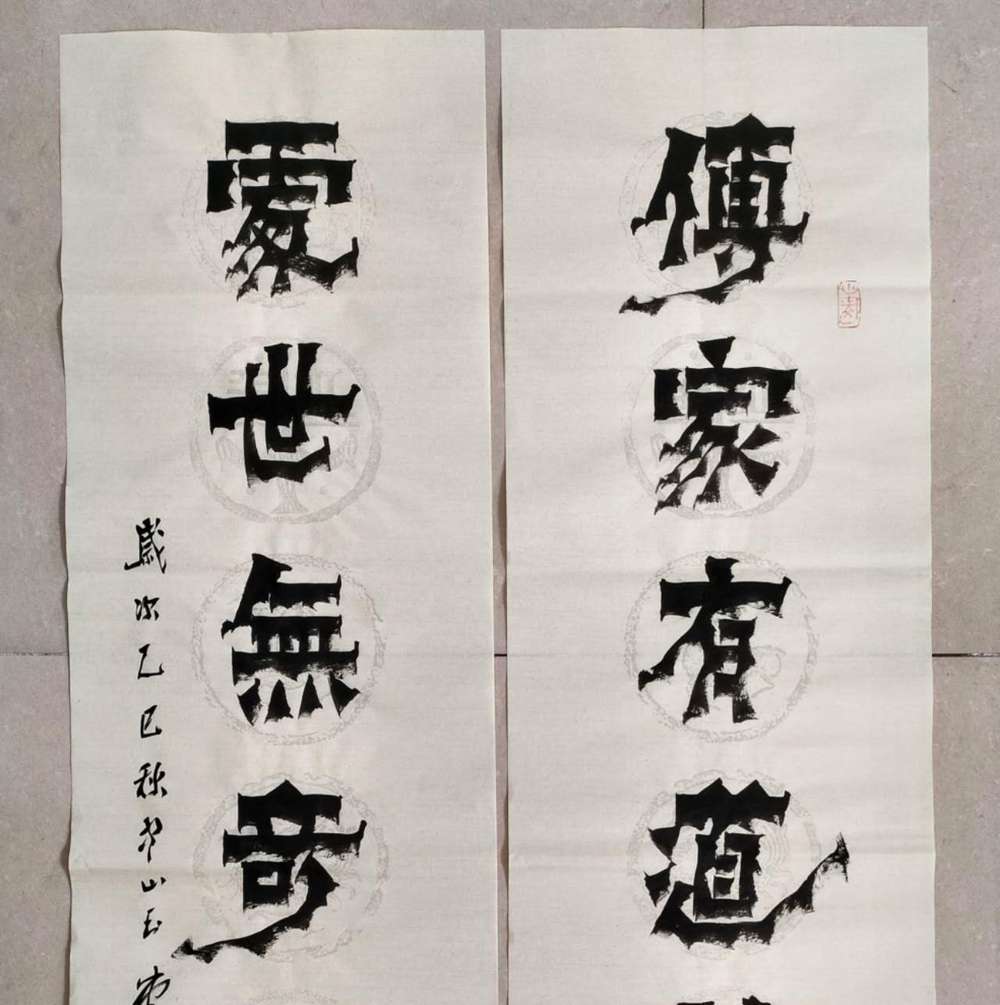 傳家有道
處世無奇
歲次乙巳秋山玉